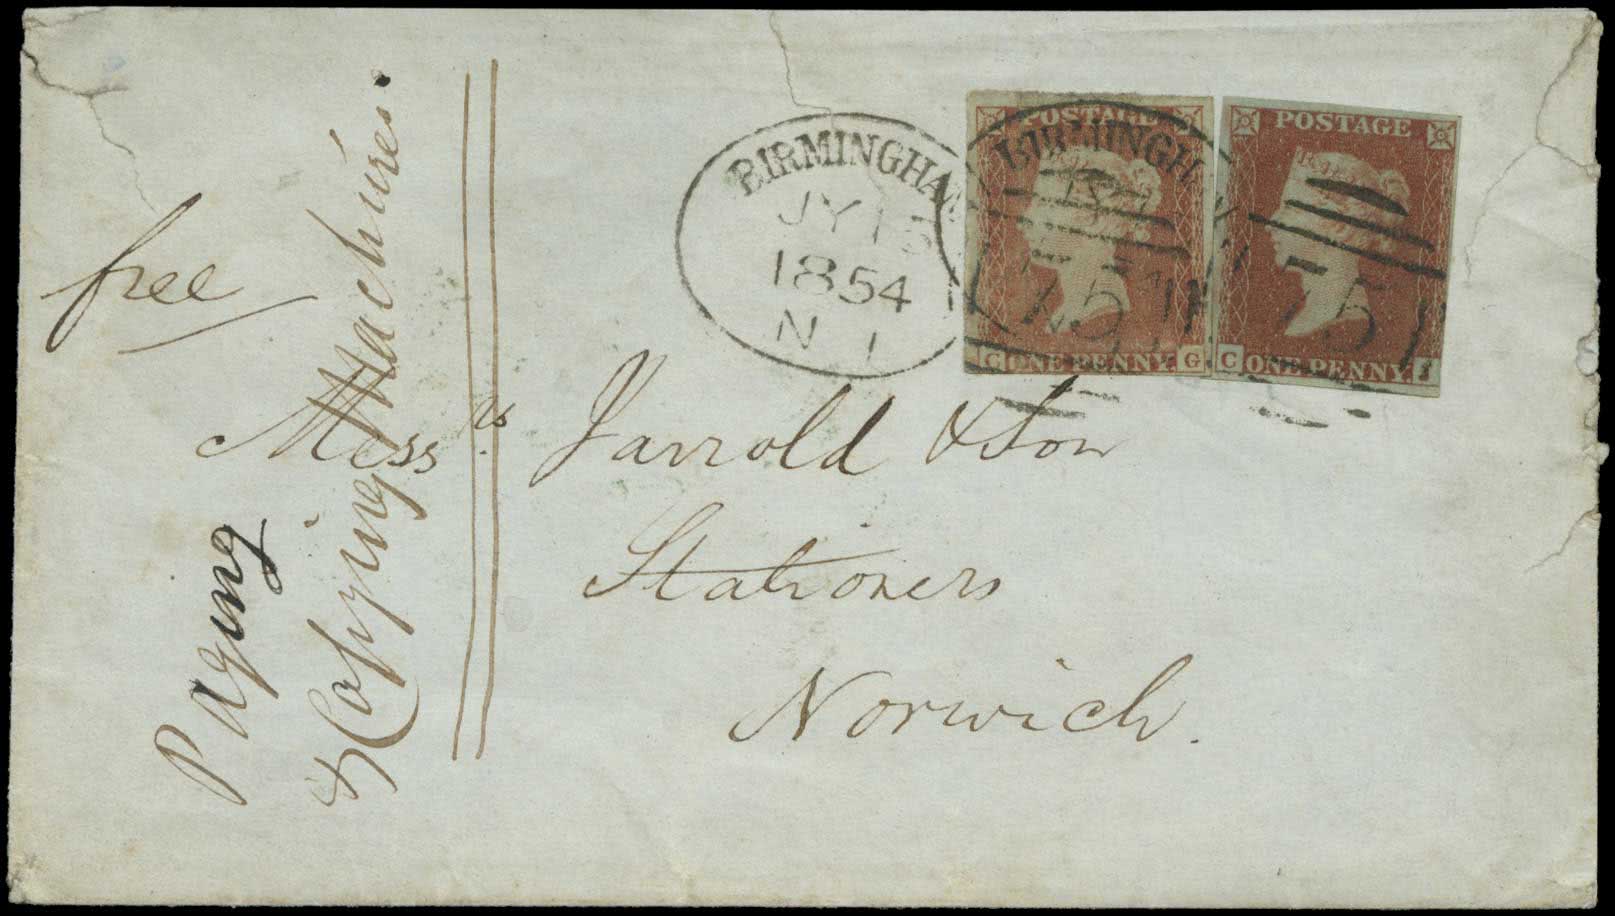 BIRMINGHAM
JY 15
1854
N 1
BIRMINGH
75
POSTAGE
C ONE PENNY G
POSTAGE
75
C ONE PENNY
free
Paging
& Copying Machines.
Mess rs Jarrold & Son
Stationers
Norwich.